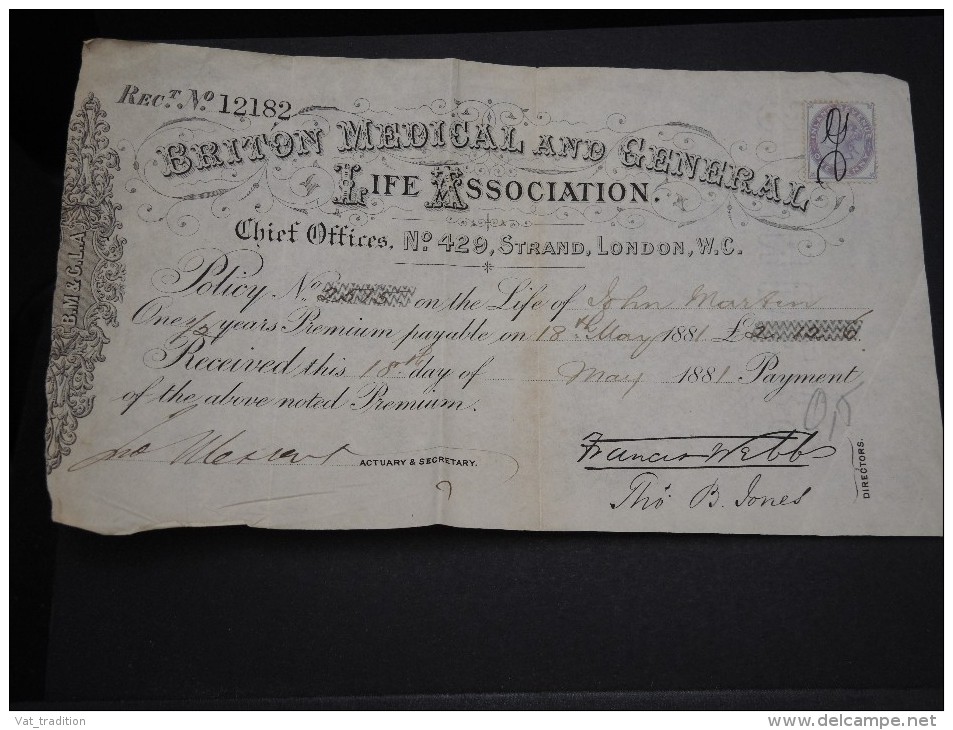 RECT. No 12182
BRITON MEDICAL AND GENERAL
LIFE ASSOCIATION.
Chief Offices, No 429, STRAND, LONDON, W.C.
B.M & G.L.A.
Policy No on the Life of John Martin
One 1/2 years Premium payable on 18th May 1881 £2 12 6
Received this 18th day of May 1881 Payment
of the above noted Premium.
ACTUARY & SECRETARY.
Francis Webb
Tho B. Jones
DIRECTORS.
Vat_tradition
delcampe.net